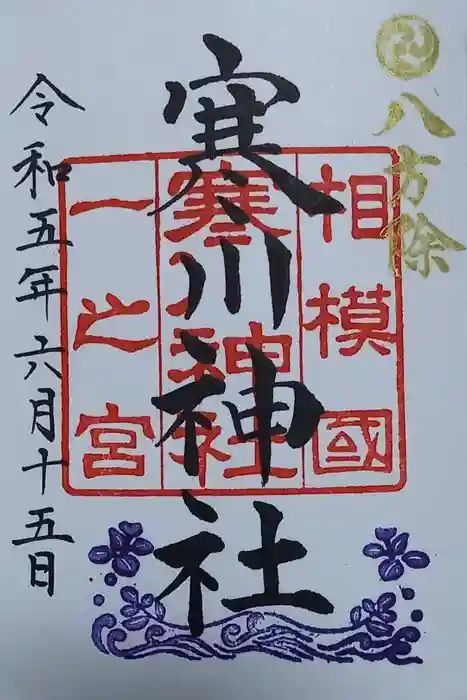 八方除
相模國
寒川神社
一之宮
寒川神社
令和五年六月十五日